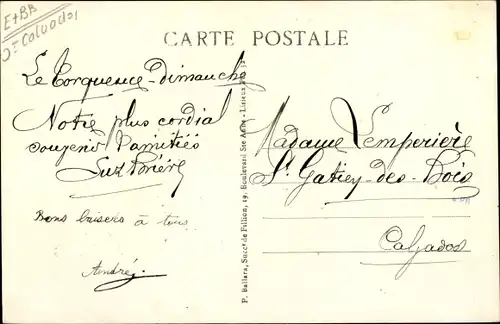 E+BB
Calvados
CARTE POSTALE
Le Torquesne - Dimanche
Notre plus cordial
souvenir d'amitiés
Bons baisers à tous
André.
P. Ballara, Succr de Fillion, 19, Boulevard Ste-Anne - Lisieux
Madame Lemperière
St Gatien-des-Bois
Calvados